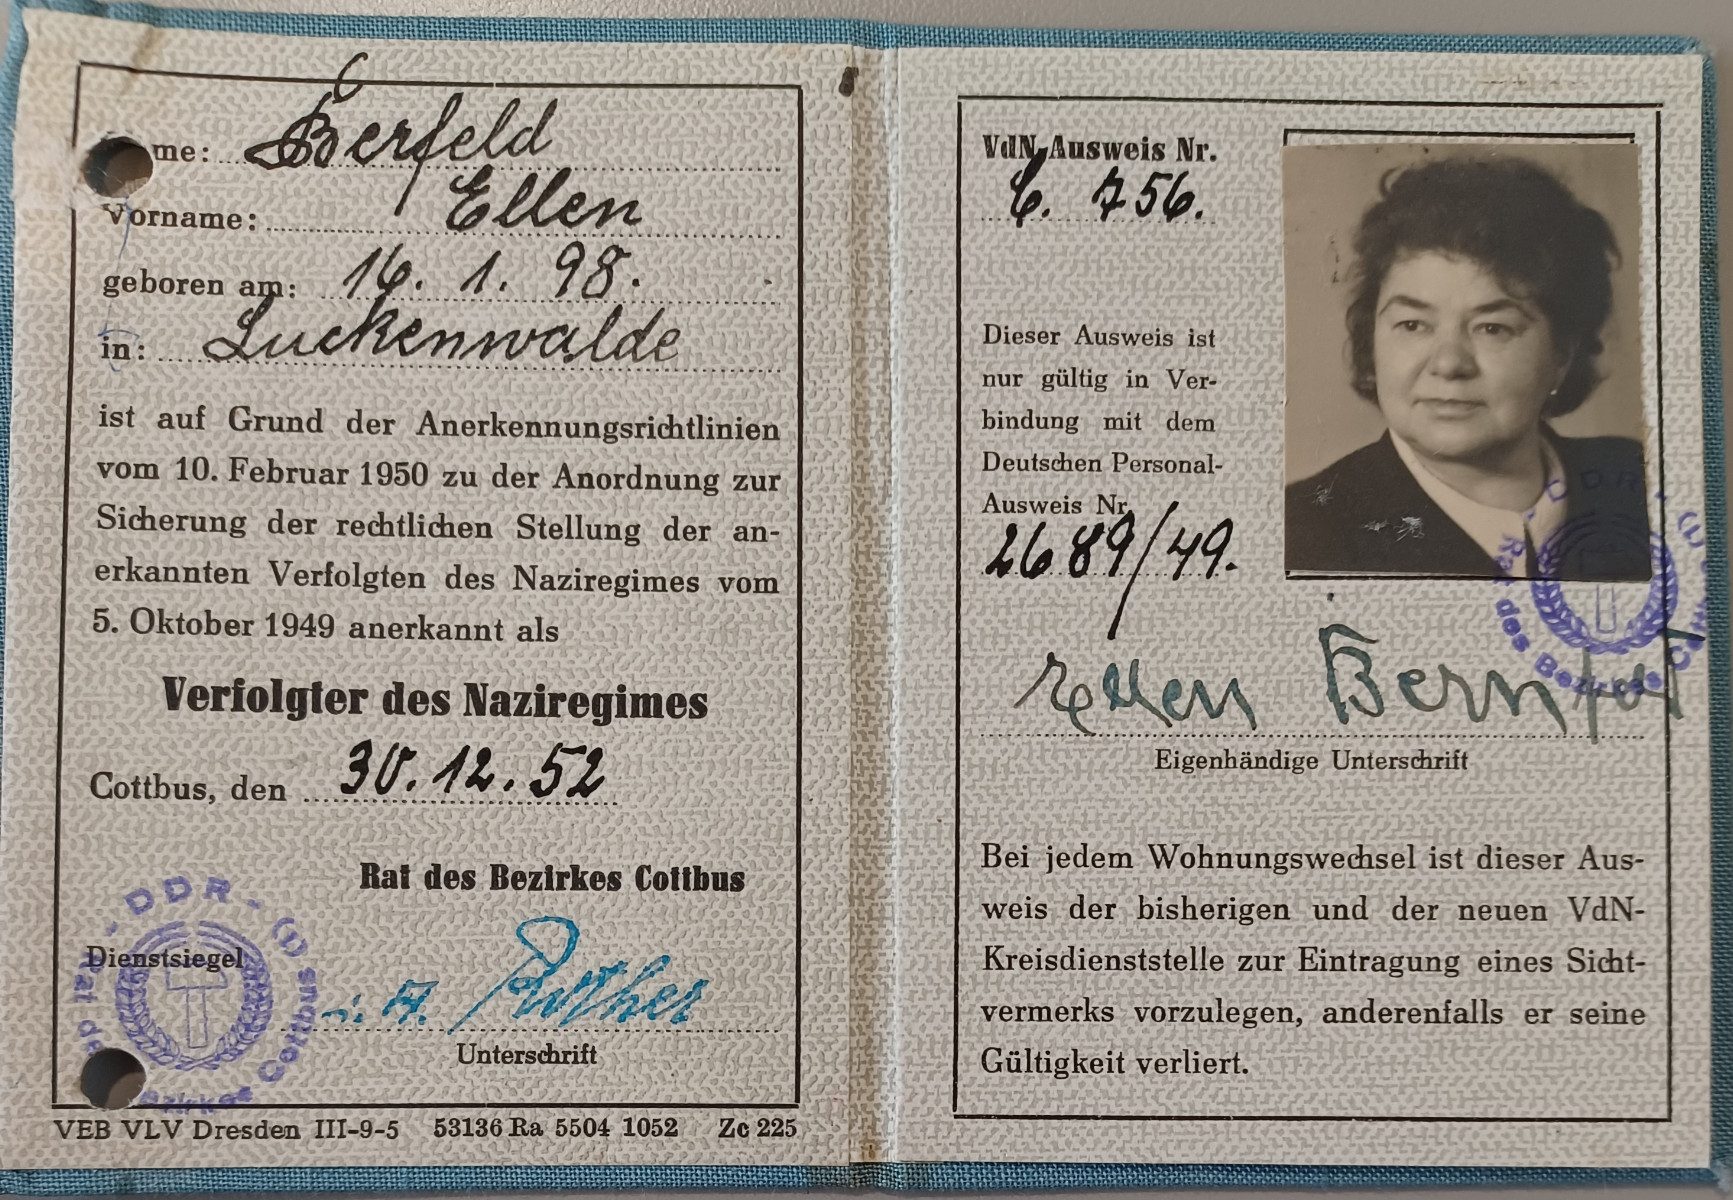 me: Berfeld
Vorname: Ellen
geboren am: 16. 1. 98.
in: Luckenwalde
ist auf Grund der Anerkennungsrichtlinien
vom 10. Februar 1950 zu der Anordnung zur
Sicherung der rechtlichen Stellung der an-
erkannten Verfolgten des Naziregimes vom
5. Oktober 1949 anerkannt als
Verfolgter des Naziregimes
Cottbus, den 30.12.52
Rat des Bezirkes Cottbus
- DDR - (1)
Rat des Bezirkes Cottbus
Dienstsiegel
i. A.
Unterschrift
VEB VLV Dresden III-9-5 53136 Ra 5504 1052 Zc 225
VdN-Ausweis Nr.
C. 756.
Dieser Ausweis ist
nur gültig in Ver-
bindung mit dem
Deutschen Personal-
Ausweis Nr.
2689/49.
- DDR - (1)
Rat des Bezirkes
Ellen
Eigenhändige Unterschrift
Bei jedem Wohnungswechsel ist dieser Aus-
weis der bisherigen und der neuen VdN-
Kreisdienststelle zur Eintragung eines Sicht-
vermerks vorzulegen, anderenfalls er seine
Gültigkeit verliert.